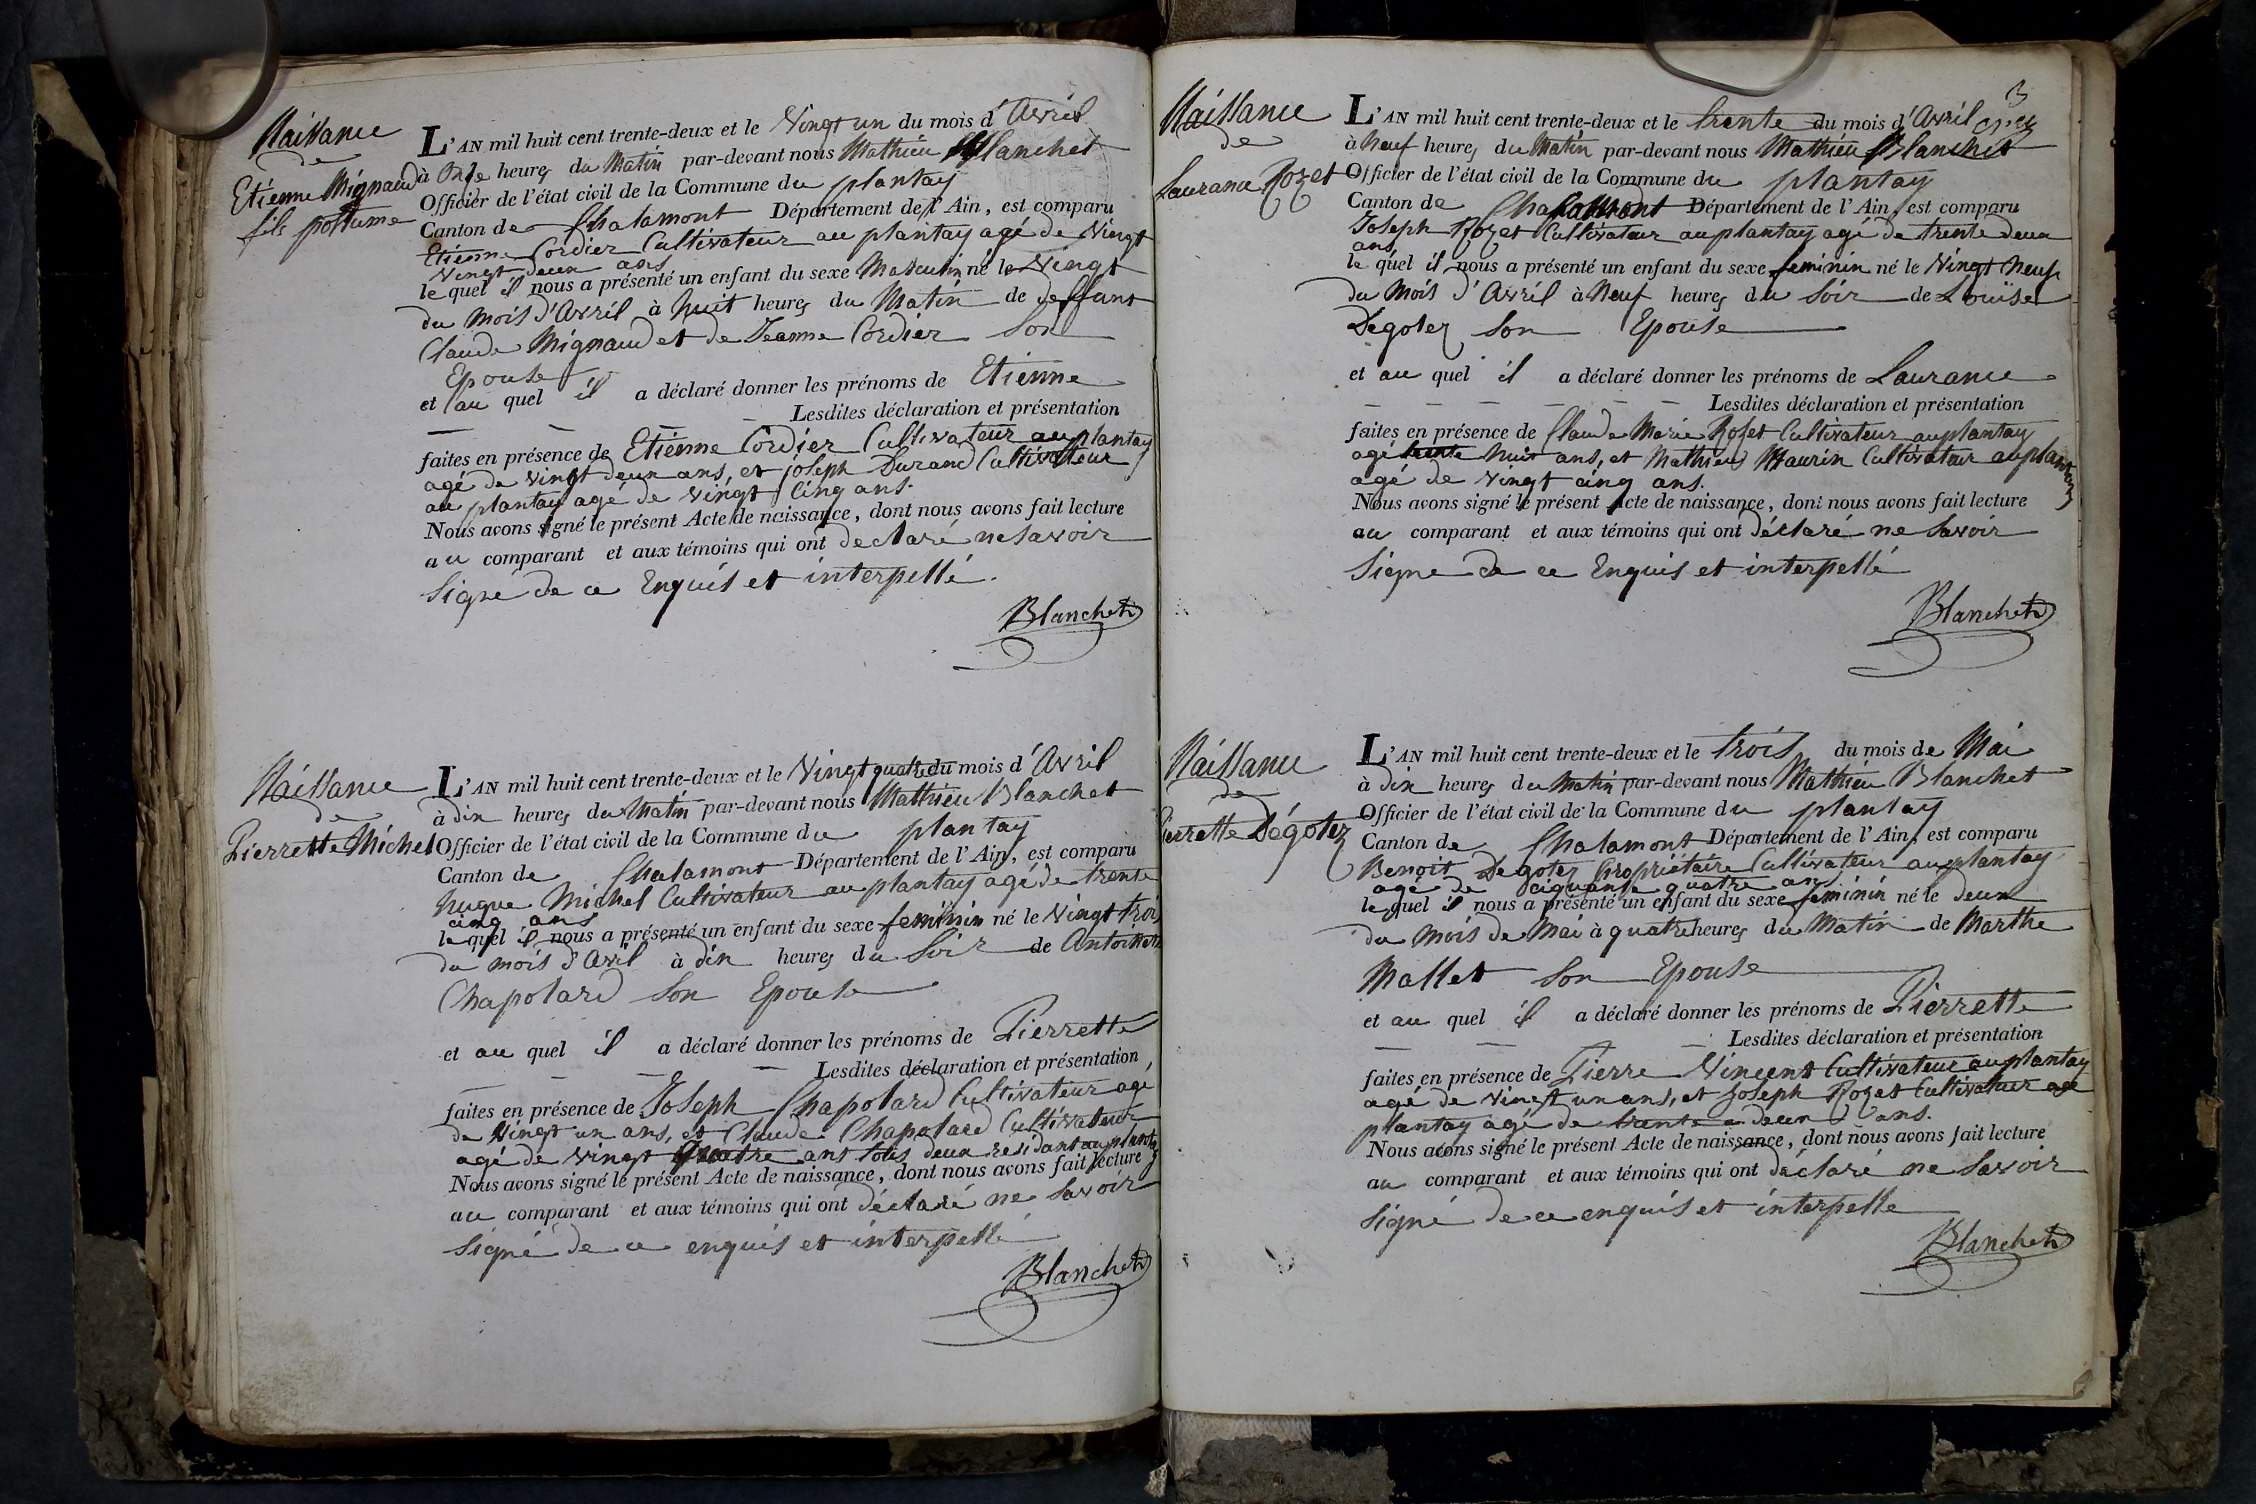 Naissance
de
Etienne Mignaud
fils postume
L'AN mil huit cent trente-deux et le Vingt un du mois d'Avril
à onze heures du Matin par-devant nous Mathieu Blanchet
Officier de l'état civil de la Commune du plantay
Canton de Chalamont Département de l'Ain, est comparu
Etienne Cordier Cultivateur au plantay agé de Vingt
Vingt deux ans
le quel il nous a présenté un enfant du sexe Masculin né le Vingt
du mois d'Avril à huit heures du Matin de deffunt
Claude Mignaud et de Jeanne Cordier Son
Epouse
et au quel il a déclaré donner les prénoms de Etienne
Lesdites déclaration et présentation
faites en présence de Etienne Cordier Cultivateur au plantay
agé de vingt deux ans, et joseph Durand Cultivateur
au plantay agé de vingt Cinq ans.
Nous avons signé le présent Acte de naissance, dont nous avons fait lecture
au comparant et aux témoins qui ont déclaré ne savoir
Signé de ce Enquis et interpellé.
Blanchet
Naissance
de
Pierrette Michel
L'AN mil huit cent trente-deux et le Vingt quatre du mois d'Avril
à dix heures du Matin par-devant nous Mathieu Blanchet
Officier de l'état civil de la Commune du plantay
Canton de Chalamont Département de l'Ain, est comparu
hugue Michel Cultivateur au plantay agé de trente
cinq ans
le quel il nous a présenté un enfant du sexe feminin né le Vingt trois
du mois d'Avril à dix heures du Soir de Antoinette
Chapolard Son Epouse
et au quel il a déclaré donner les prénoms de Pierrette
Lesdites déclaration et présentation
faites en présence de Joseph Chapolard Cultivateur agé
de Vingt un ans, et Claude Chapolard Cultivateur
agé de vingt quatre ans tous deux résidant au plantay
Nous avons signé le présent Acte de naissance, dont nous avons fait lecture
au comparant et aux témoins qui ont déclaré ne Savoir
Signé de ce enquis et interpellé
Blanchet
3
Naissance
de
Laurance Rozet
L'AN mil huit cent trente-deux et le trente du mois d'Avril
à Neuf heures du Matin par-devant nous Mathieu Blanchet
Officier de l'état civil de la Commune du plantay
Canton de Chalamont Département de l'Ain, est comparu
Joseph Rozet Cultivateur au plantay agé de trente deux
ans
le quel il nous a présenté un enfant du sexe feminin né le Vingt Neuf
du Mois d'Avril à Neuf heures du Soir de Louise
Dégolez Son Epouse
et au quel il a déclaré donner les prénoms de Laurance
Lesdites déclaration et présentation
faites en présence de Claude Marie Rozet Cultivateur au plantay
agé trente huit ans, et Mathieu Maurin Cultivateur au plantay
agé de Vingt cinq ans.
Nous avons signé le présent Acte de naissance, dont nous avons fait lecture
au comparant et aux témoins qui ont déclaré ne Savoir
Signe de ce Enquis et interpellé
Blanchet
Naissance
de
Pierrette Dégolez
L'AN mil huit cent trente-deux et le trois du mois de Mai
à dix heures du Matin par-devant nous Mathieu Blanchet
Officier de l'état civil de la Commune du plantay
Canton de Chalamont Département de l'Ain, est comparu
Benoit Degolez Propriétaire Cultivateur au plantay
agé de ciquante quatre ans
le quel il nous a présenté un enfant du sexe feminin né le deux
du mois de Mai à quatre heures du Matin de Marthe
Mallet Son Epouse
et au quel il a déclaré donner les prénoms de Pierrette
Lesdites déclaration et présentation
faites en présence de Pierre Vincent Cultivateur au plantay
agé de vingt un ans, et Joseph Rozet Cultivateur au
plantay agé de trente deux ans.
Nous avons signé le présent Acte de naissance, dont nous avons fait lecture
au comparant et aux témoins qui ont déclaré ne Savoir
Signé de ce enquis et interpelle
Blanchet